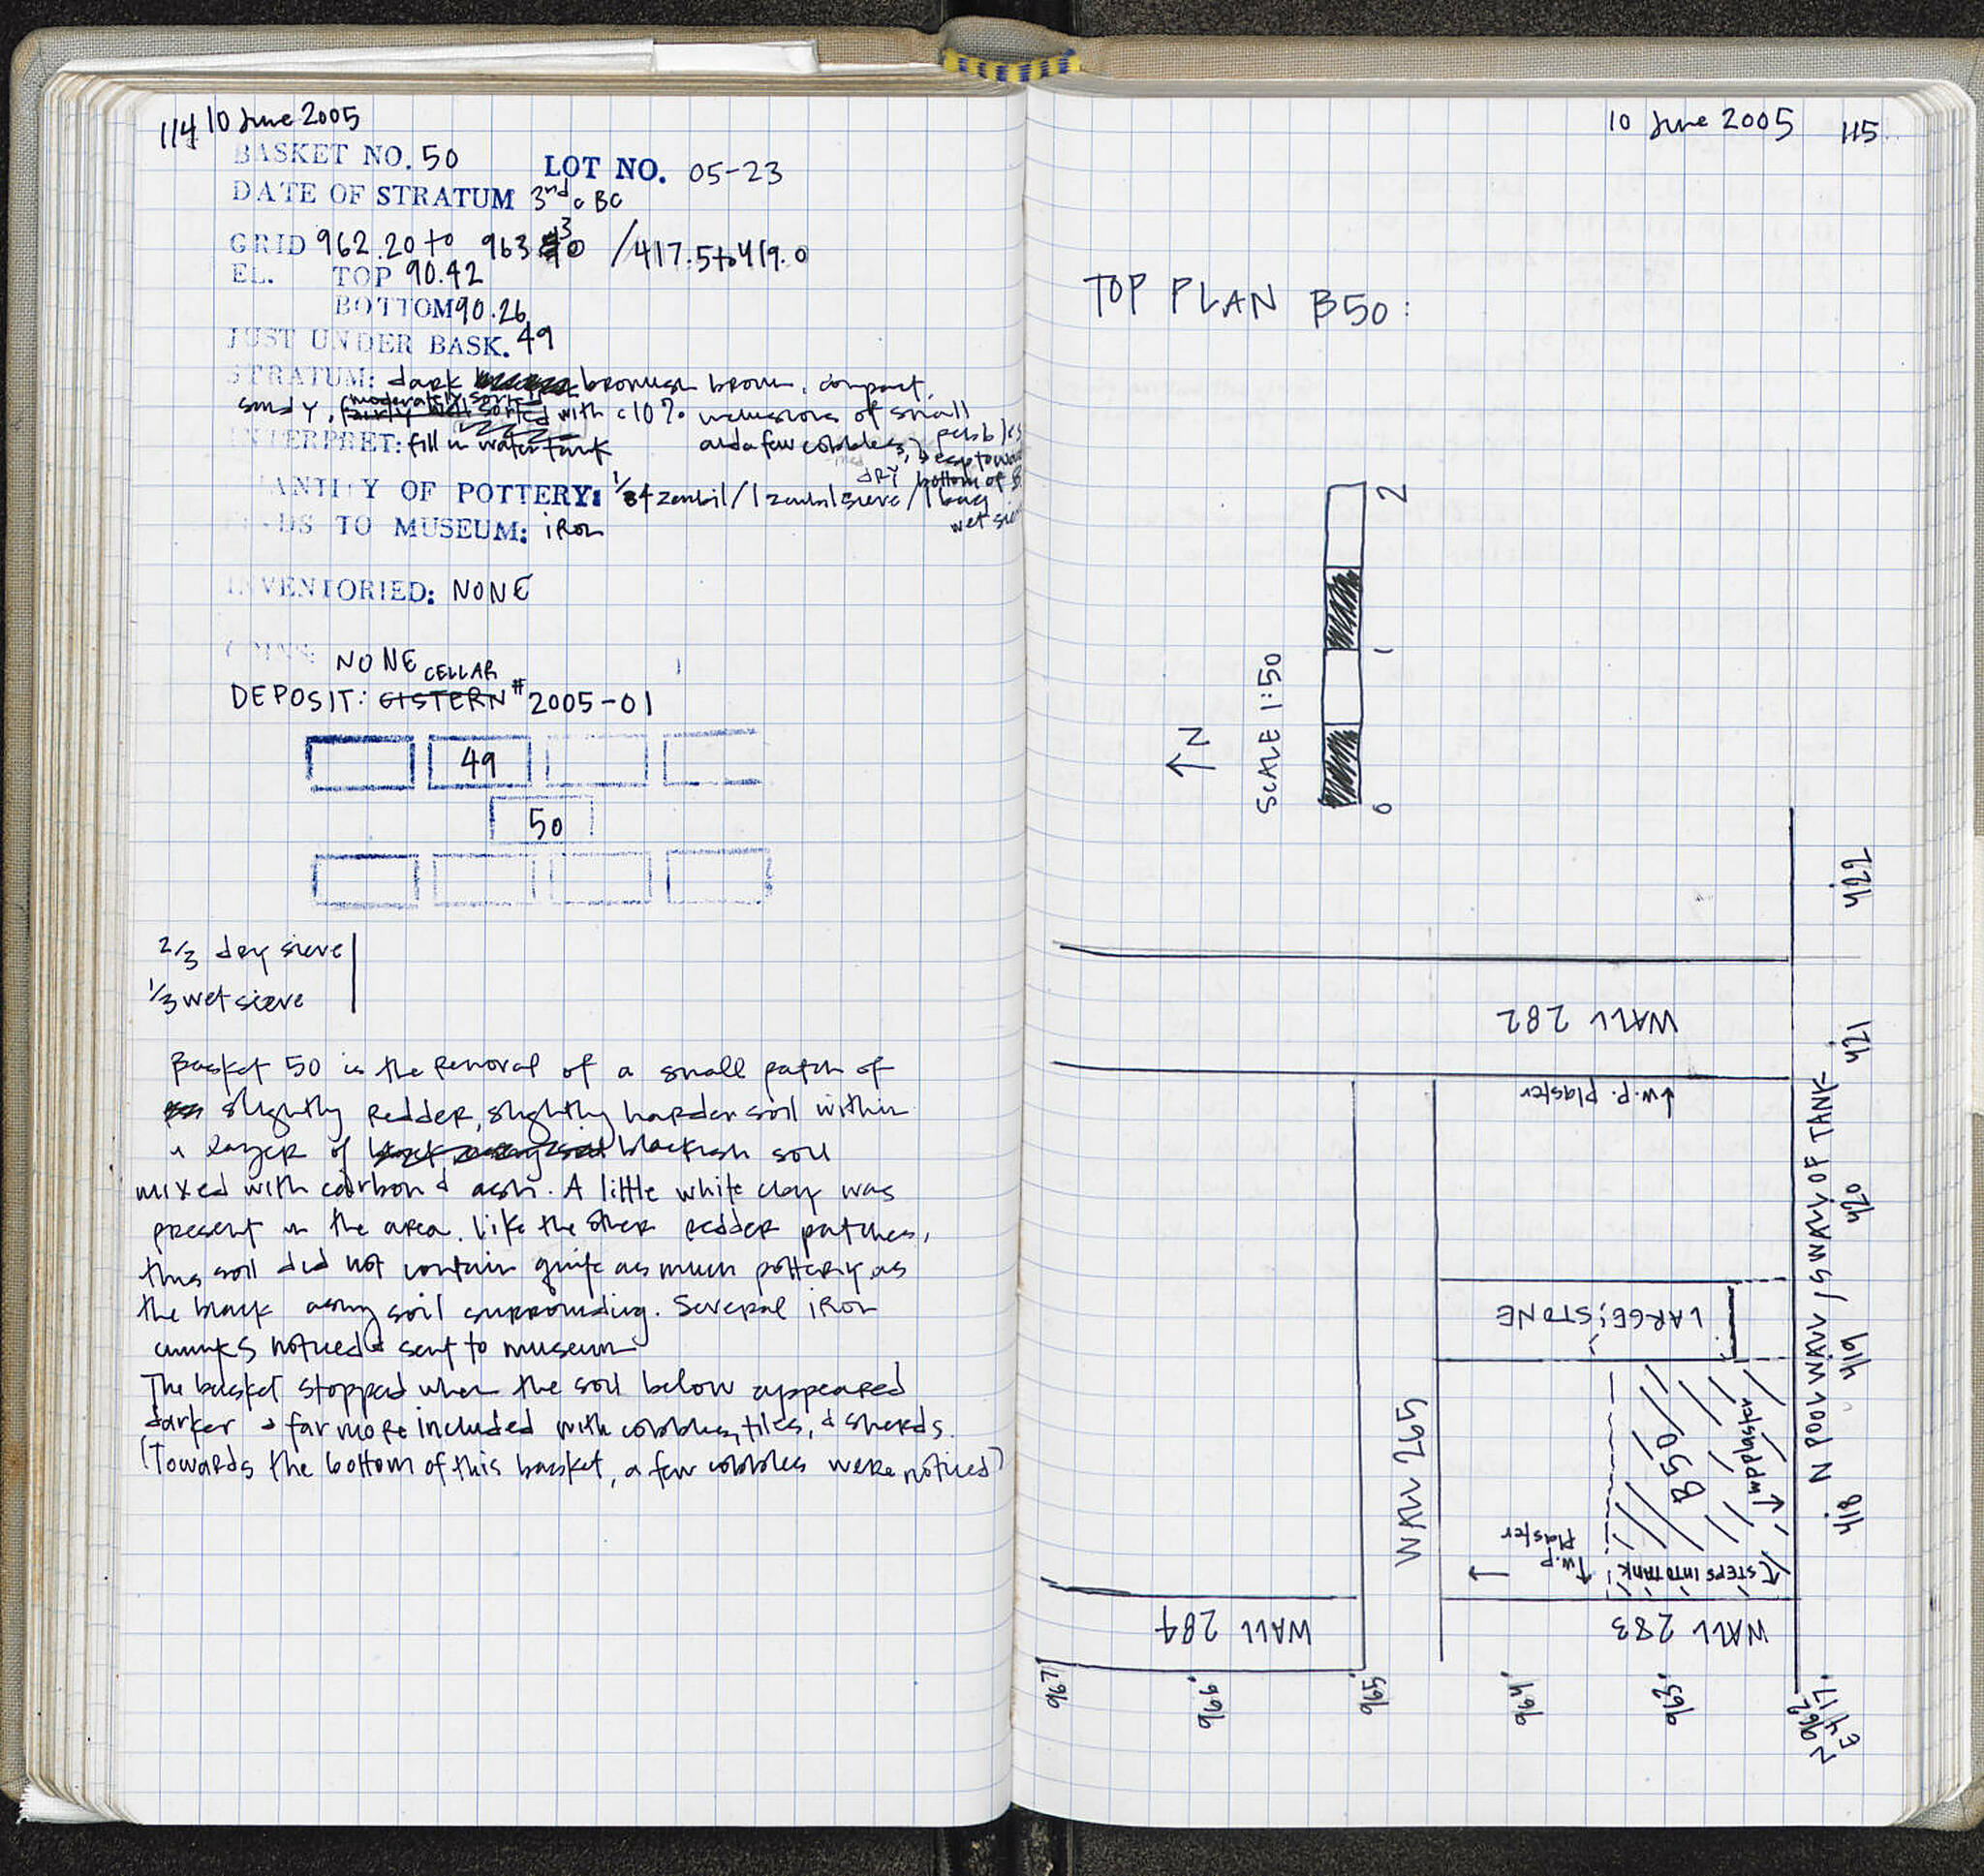 114 10 June 2005
BASKET NO. 50 LOT NO. 05-23
DATE OF STRATUM 3rd c BC
GRID 962.20 to 963.30 / 417.5 to 419.0
EL. TOP 90.42
BOTTOM 90.26
JUST UNDER BASK. 49
STRATUM: dark brown, compact,
sandy, moderately sorted with <10% inclusions of small pebbles
and a few cobbles, esp toward
bottom of B.
INTERPRET: fill in water tank
QUANTITY OF POTTERY: 1/4 zembil / 1 zembil DRY sieve / 1 bag
wet sieve
FINDS TO MUSEUM: iRon
INVENTORIED: NONE
COINS: NONE
CELLAR
DEPOSIT: CISTERN # 2005-01
49
50
2/3 dry sieve
1/3 wet sieve
Basket 50 is the Removal of a small patch of
slightly Redder, slightly harder soil within
a layer of blackish soil
mixed with carbon & ash. A little white clay was
present in the area. Like the other redder patches,
this soil did not contain quite as much pottery as
the black ashy soil surrounding. Several iRon
chunks noticed & sent to museum
The basket stopped when the soil below appeared
darker & far more included with cobbles, tiles, & sherds.
(Towards the bottom of this basket, a few cobbles were noticed)
10 June 2005 115
TOP PLAN B50:
2
1
0
SCALE 1:50
N
422
WALL 282
421
↓w.p. plaster
420
N POOL WALL / S WALL OF TANK
LARGE STONE
419
WALL 265
B50
wp plaster
418
w.p Plaster
STEPS INTO TANK
WALL 284
WALL 283
967
966
965
964
963
N 962
E 417